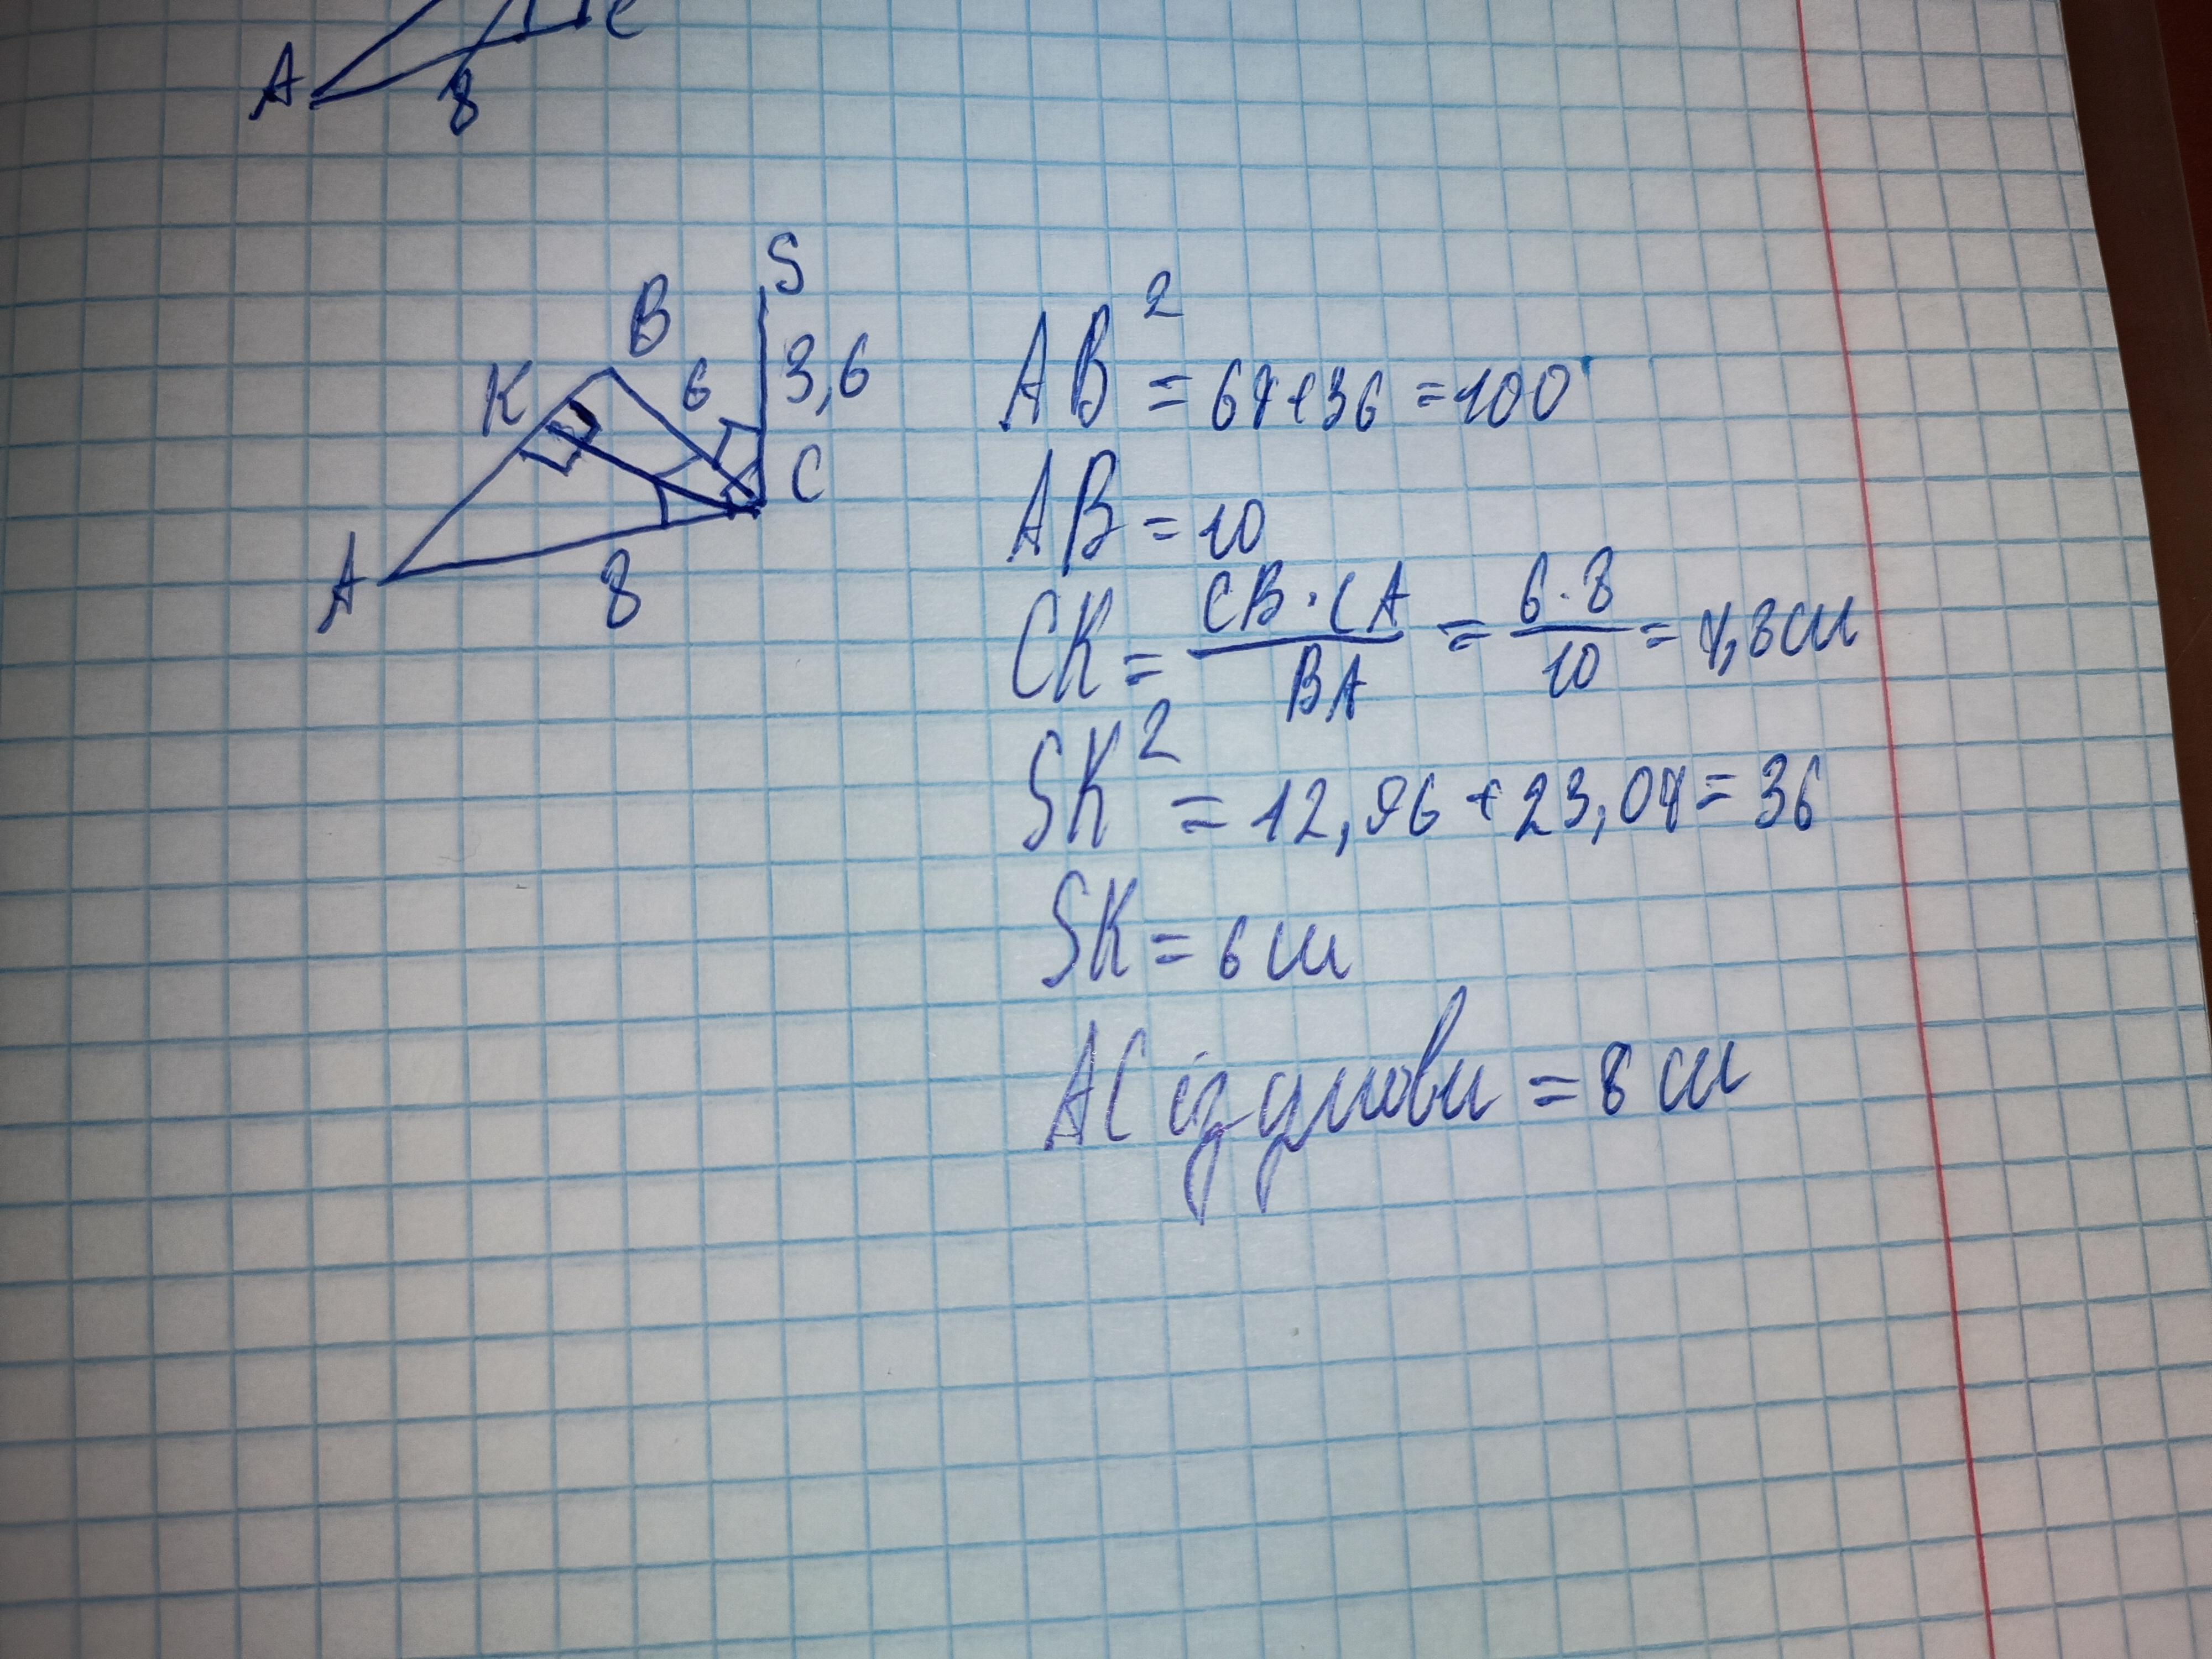 A 8 C
S
B
K 6 3,6
C
A 8
AB² = 64+36 = 100
AB = 10
CK = CB · CA / BA = 6 · 8 / 10 = 4,8 см
SK² = 12,96 + 23,04 = 36
SK = 6 см
AC із умови = 8 см